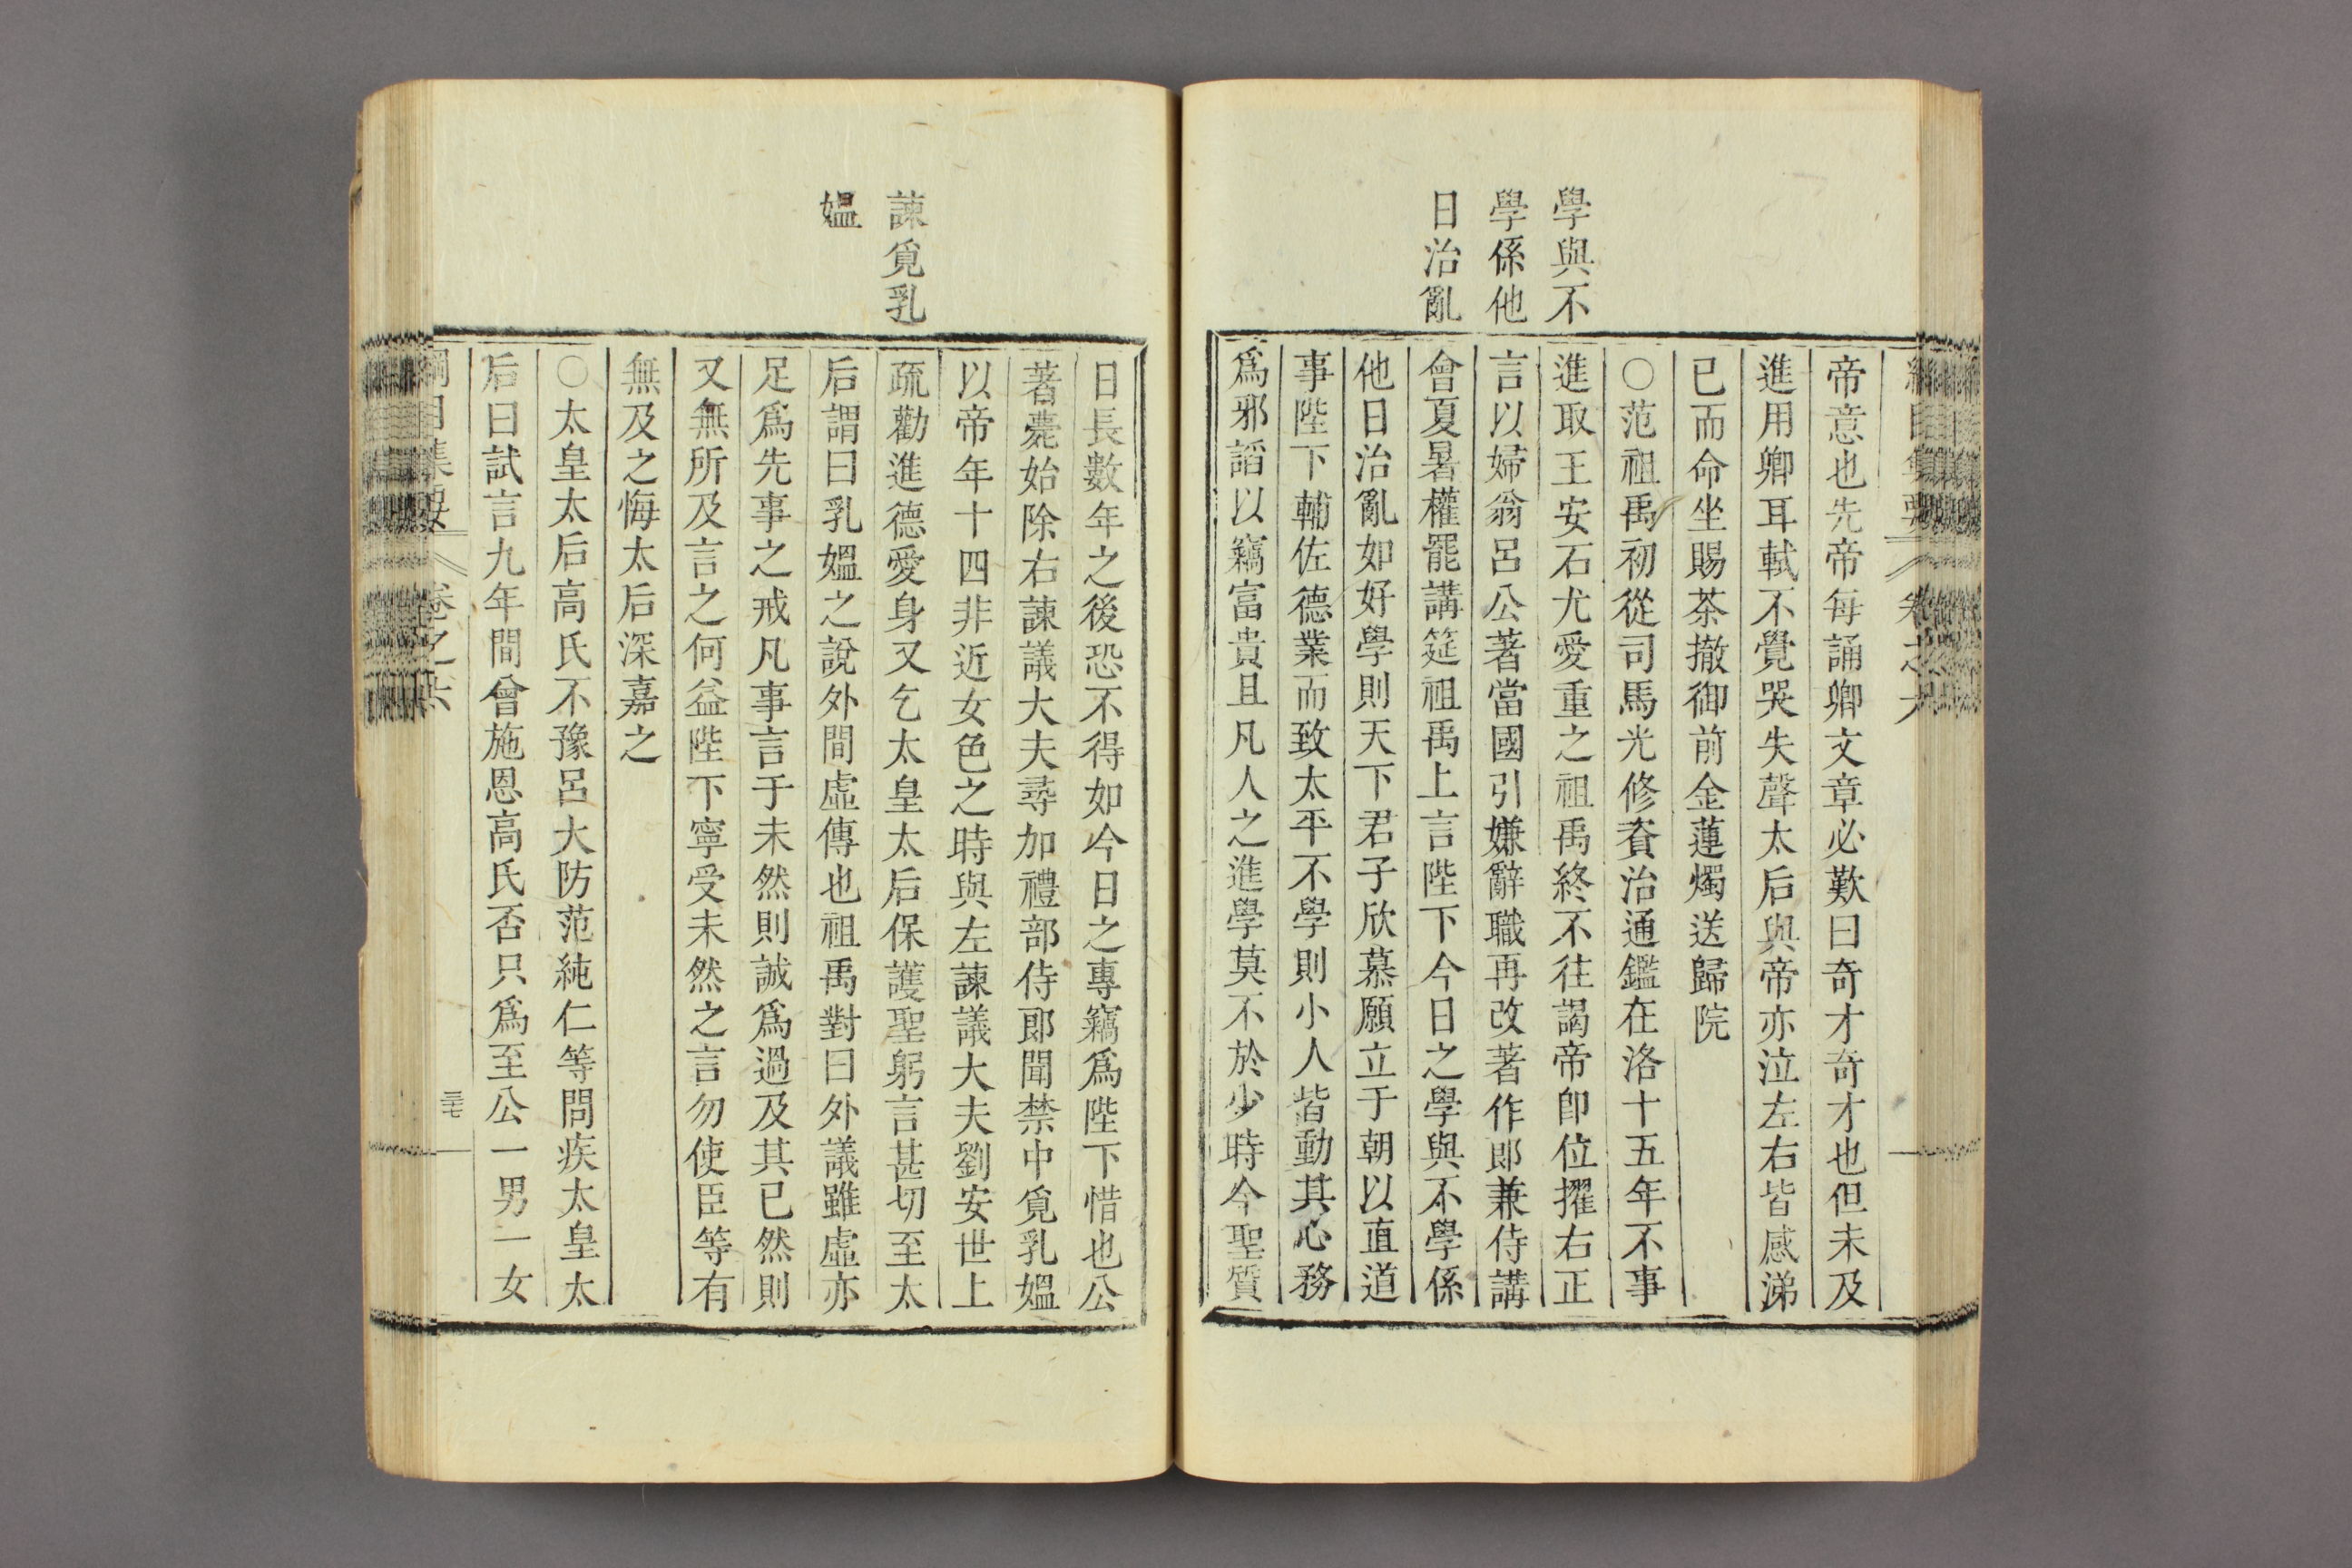 學與不
學係他
日治亂
帝意也先帝每誦卿文章必歎曰奇才奇才也但未及
進用卿耳軾不覺哭失聲太后與帝亦泣左右皆感涕
已而命坐賜茶撤御前金蓮燭送歸院
○范祖禹初從司馬光修資治通鑑在洛十五年不事
進取王安石尤愛重之祖禹終不往謁帝卽位擢右正
言以婦翁呂公著當國引嫌辭職再改著作郎兼侍講
會夏暑權罷講筵祖禹上言陛下今日之學與不學係
他日治亂如好學則天下君子欣慕願立于朝以直道
事陛下輔佐德業而致太平不學則小人皆動其心務
爲邪謟以竊富貴且凡人之進學莫不於少時今聖質
諫覓乳
媼
日長數年之後恐不得如今日之專竊爲陛下惜也公
著薨始除右諫議大夫尋加禮部侍郎聞禁中覓乳媼
以帝年十四非近女色之時與左諫議大夫劉安世上
疏勸進德愛身又乞太皇太后保護聖躬言甚切至太
后謂曰乳媼之說外間虛傳也祖禹對曰外議雖虛亦
足爲先事之戒凡事言于未然則誠爲過及其已然則
又無所及言之何益陛下寧受未然之言勿使臣等有
無及之悔太后深嘉之
○太皇太后高氏不豫呂大防范純仁等問疾太皇太
后曰試言九年間曾施恩高氏否只爲至公一男一女
綱目集要 卷之 三七